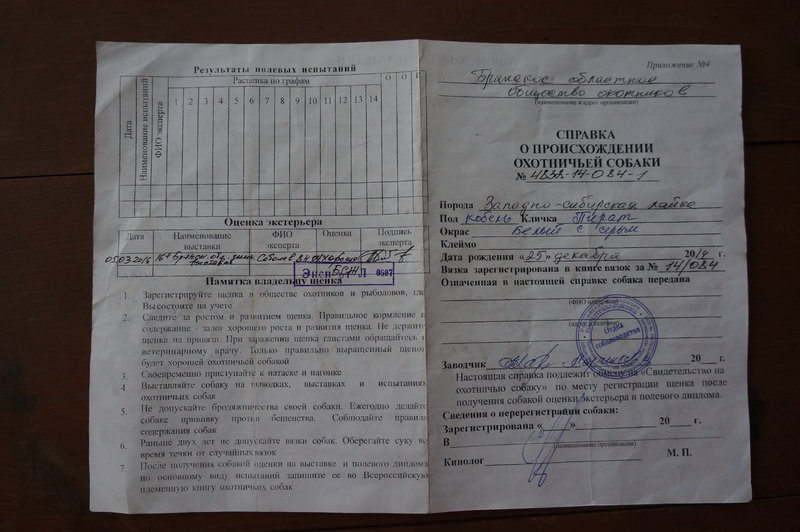 Результаты полевых испытаний
Дата
Наименование испытаний
ФИО эксперта
Расценка по графам
О О
1 2 3 4 5 6 7 8 9 10 11 12 13 14
Оценка экстерьера
Дата Наименование выставки ФИО эксперта Оценка Подпись эксперта
05032016
Эксп 0597
Памятка владельцу щенка
1. Зарегистрируйте щенка в обществе охотников и рыболовов, где
Вы состоите на учете
2. Следите за ростом и развитием щенка. Правильное кормление и
содержание - залог хорошего роста и развития щенка. Не держите
щенка на привязи. При заражении щенка глистами обращайтесь к
ветеринарному врачу. Только правильно выращенный щенок
будет хорошей охотничьей собакой
3. Своевременно приступайте к натаске и нагонке
4. Выставляйте собаку на выводках, выставках и испытаниях
охотничьих собак
5. Не допускайте бродяжничества своей собаки. Ежегодно делайте
собаке прививку против бешенства. Соблюдайте правила
содержания собак
6. Раньше двух лет не допускайте вязки собак. Оберегайте суку во
время течки от случайных вязок
7. После получения собакой оценки на выставке и полевого диплома
по основному виду испытаний запишите ее во Всероссийскую
племенную книгу охотничьих собак.
Приложение №4
областное
общество охотников
(наименование и адрес организации)
СПРАВКА
О ПРОИСХОЖДЕНИИ
ОХОТНИЧЬЕЙ СОБАКИ
№ 4838-14-084-1
Порода Западно-сибирская лайка
Пол кобель Кличка Пират
Окрас Белый с серым
Клеймо
Дата рождения «25» декабря 2014 г.
Вязка зарегистрирована в книге вязок за № 14/084
Означенная в настоящей справке собака передана
(ФИО
(адрес и телефон)
Отдел
собаководства
Заводчик 20 г.
Настоящая справка подлежит обмену на «Свидетельство на
охотничью собаку» по месту регистрации щенка после
получения собакой оценки экстерьера и полевого диплома.
Сведения о перерегистрации собаки:
Зарегистрирована « » 20 г.
В
(наименование организации)
Кинолог М. П.